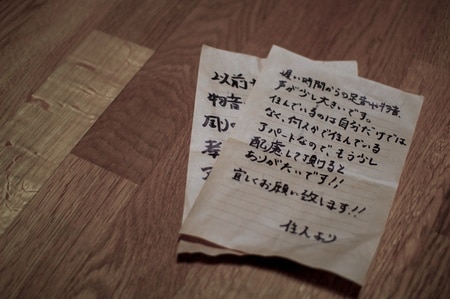 遅い時間からの足音や物音、
声が少し大きいです。
住んでいるのは自分だけでは
なく、何人かで住んでいる
アパートなので、もう少し
配慮して頂けると
ありがたいです!!
宜しくお願い致します!!
住人より
以前
物音
周